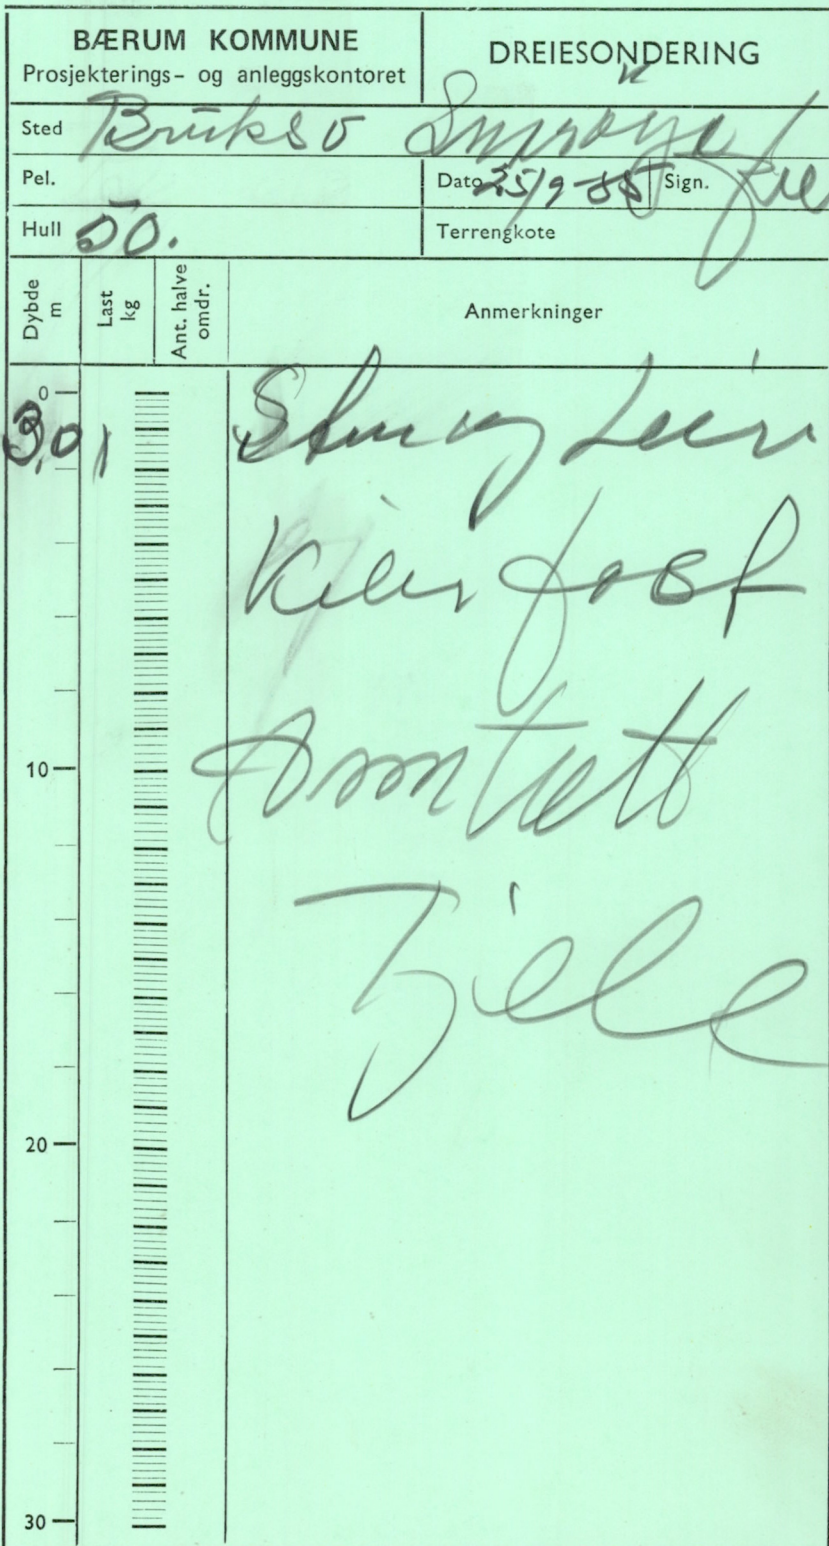 BÆRUM KOMMUNE
Prosjekterings- og anleggskontoret
DREIESONDERING
Sted Bruksv
Pel.
Dato 25/9-85 Sign.
Hull 50.
Terrengkote
Dybde m
Last kg
Ant. halve omdr.
Anmerkninger
0
3,0
Stein og Leire
Kiler fast
Antatt
Fjell
10
20
30